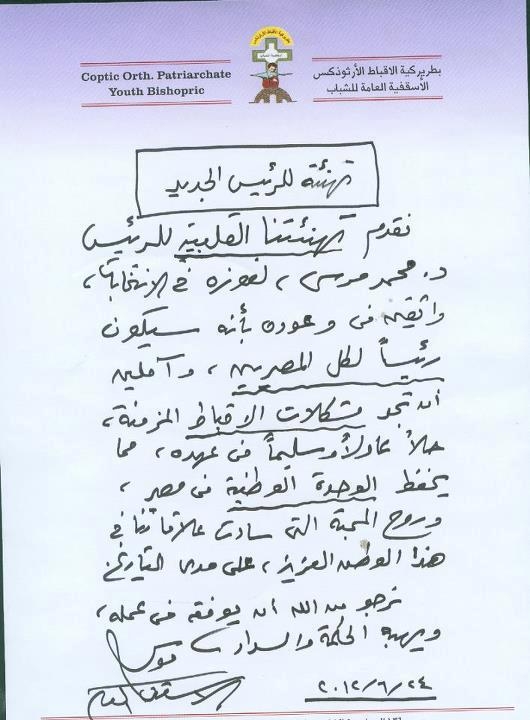 Coptic Orth. Patriarchate
Youth Bishopric
بطريركية الأقباط الأرثوذكس
الأسقفية العامة للشباب
تهنئة للرئيس الجديد
نقدم تهنئتنا القلبية للرئيس
د. محمد مرسى، لفوزه فى الانتخابات،
واثقين فى وعوده بأنه سيكون
رئيساً لكل المصريين، وآملين
أن تجد مشكلات الأقباط المزمنة،
حلاً عادلاً وسليماً فى عهده، مما
يحفظ الوحدة الوطنية فى مصر،
وروح المحبة التى سادت علاقاتنا فى
هذا الوطن العزيز، على مدى التاريخ
نرجو من الله أن يوفقه فى عمله،
ويهبه الحكمة والسداد
موسى
الأسقف العام
٢٠١٢/٦/٢٤